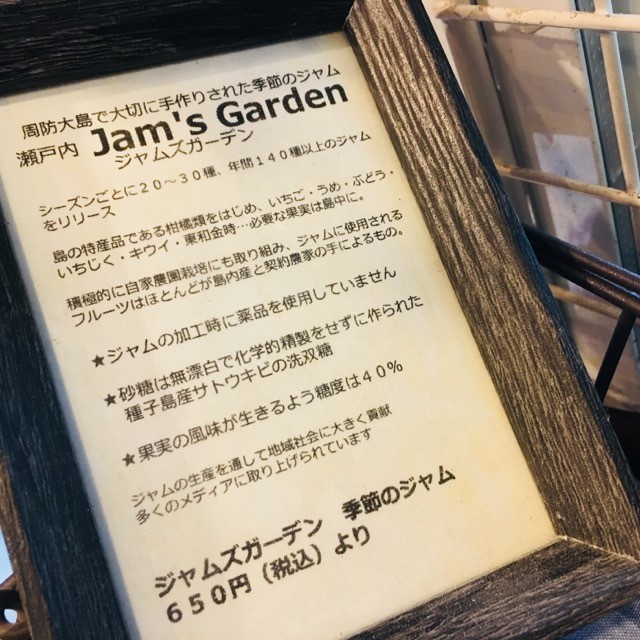 周防大島で大切に手作りされた季節のジャム
瀬戸内 Jam's Garden
ジャムズガーデン
シーズンごとに２０〜３０種、年間１４０種以上のジャム
をリリース
島の特産品である柑橘類をはじめ、いちご・うめ・ぶどう・
いちじく・キウイ・東和金時…必要な果実は島中に。
積極的に自家農園栽培にも取り組み、ジャムに使用される
フルーツはほとんどが島内産と契約農家の手によるもの。
★ジャムの加工時に薬品を使用していません
★砂糖は無漂白で化学的精製をせずに作られた
種子島産サトウキビの洗双糖
★果実の風味が生きるよう糖度は４０％
ジャムの生産を通して地域社会に大きく貢献
多くのメディアに取り上げられています
ジャムズガーデン 季節のジャム
６５０円（税込）より